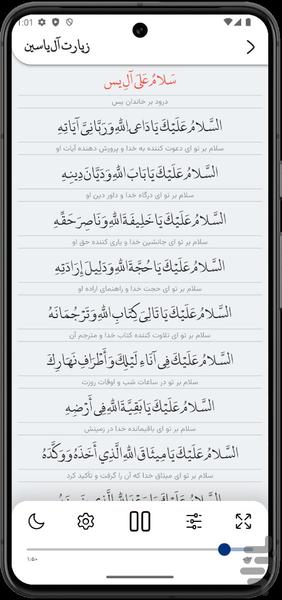 1:01
زیارت آل یاسین
سَلامٌ عَلَىٰ آلِ يس
درود بر خاندان یس
السَّلَامُ عَلَيْكَ يَا دَاعِيَ اللّٰهِ وَرَبَّانِيَّ آيَاتِهِ
سلام بر تو ای دعوت کننده به خدا و پرورش دهنده آیات او
السَّلَامُ عَلَيْكَ يَا بَابَ اللّٰهِ وَدَيَّانَ دِينِهِ
سلام بر تو ای درگاه خدا و داور دین او
السَّلَامُ عَلَيْكَ يَا خَلِيفَةَ اللّٰهِ وَنَاصِرَ حَقِّهِ
سلام بر تو ای جانشین خدا و یاری کننده حق او
السَّلَامُ عَلَيْكَ يَا حُجَّةَ اللّٰهِ وَدَلِيلَ إِرَادَتِهِ
سلام بر تو ای حجت خدا و راهنمای اراده او
السَّلَامُ عَلَيْكَ يَا تَالِيَ كِتَابِ اللّٰهِ وَتَرْجُمَانَهُ
سلام بر تو ای تلاوت کننده کتاب خدا و مترجم آن
السَّلَامُ عَلَيْكَ فِي آنَاءِ لَيْلِكَ وَأَطْرَافِ نَهَارِكَ
سلام بر تو در ساعات شب و اوقات روزت
السَّلَامُ عَلَيْكَ يَا بَقِيَّةَ اللّٰهِ فِي أَرْضِهِ
سلام بر تو ای باقیمانده خدا در زمینش
السَّلَامُ عَلَيْكَ يَا مِيثَاقَ اللّٰهِ الَّذِي أَخَذَهُ وَوَكَّدَهُ
سلام بر تو ای میثاق خدا که آن را گرفت و تأکید کرد
۱:۵۰